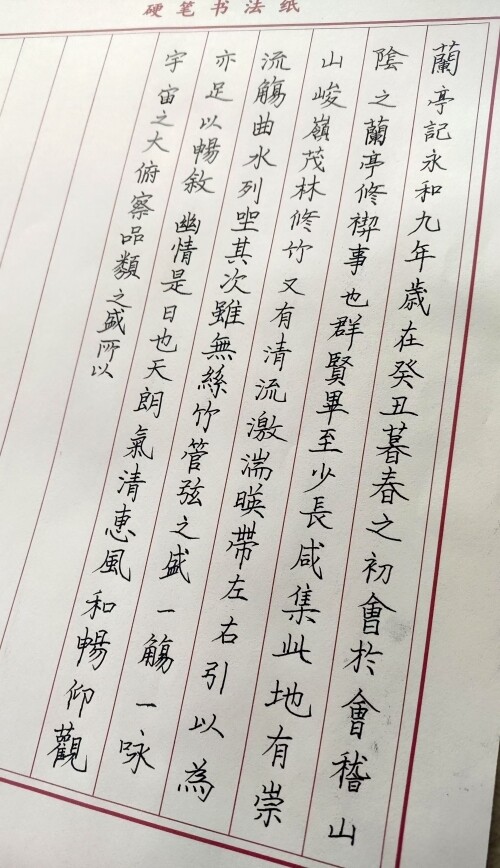 硬笔书法纸
蘭亭記永和九年歲在癸丑暮春之初會於會稽山
陰之蘭亭修禊事也群賢畢至少長咸集此地有崇
山峻嶺茂林修竹又有清流激湍暎帶左右引以為
流觴曲水列坐其次雖無絲竹管弦之盛一觴一咏
亦足以暢敘幽情是日也天朗氣清惠風和暢仰觀
宇宙之大俯察品類之盛所以